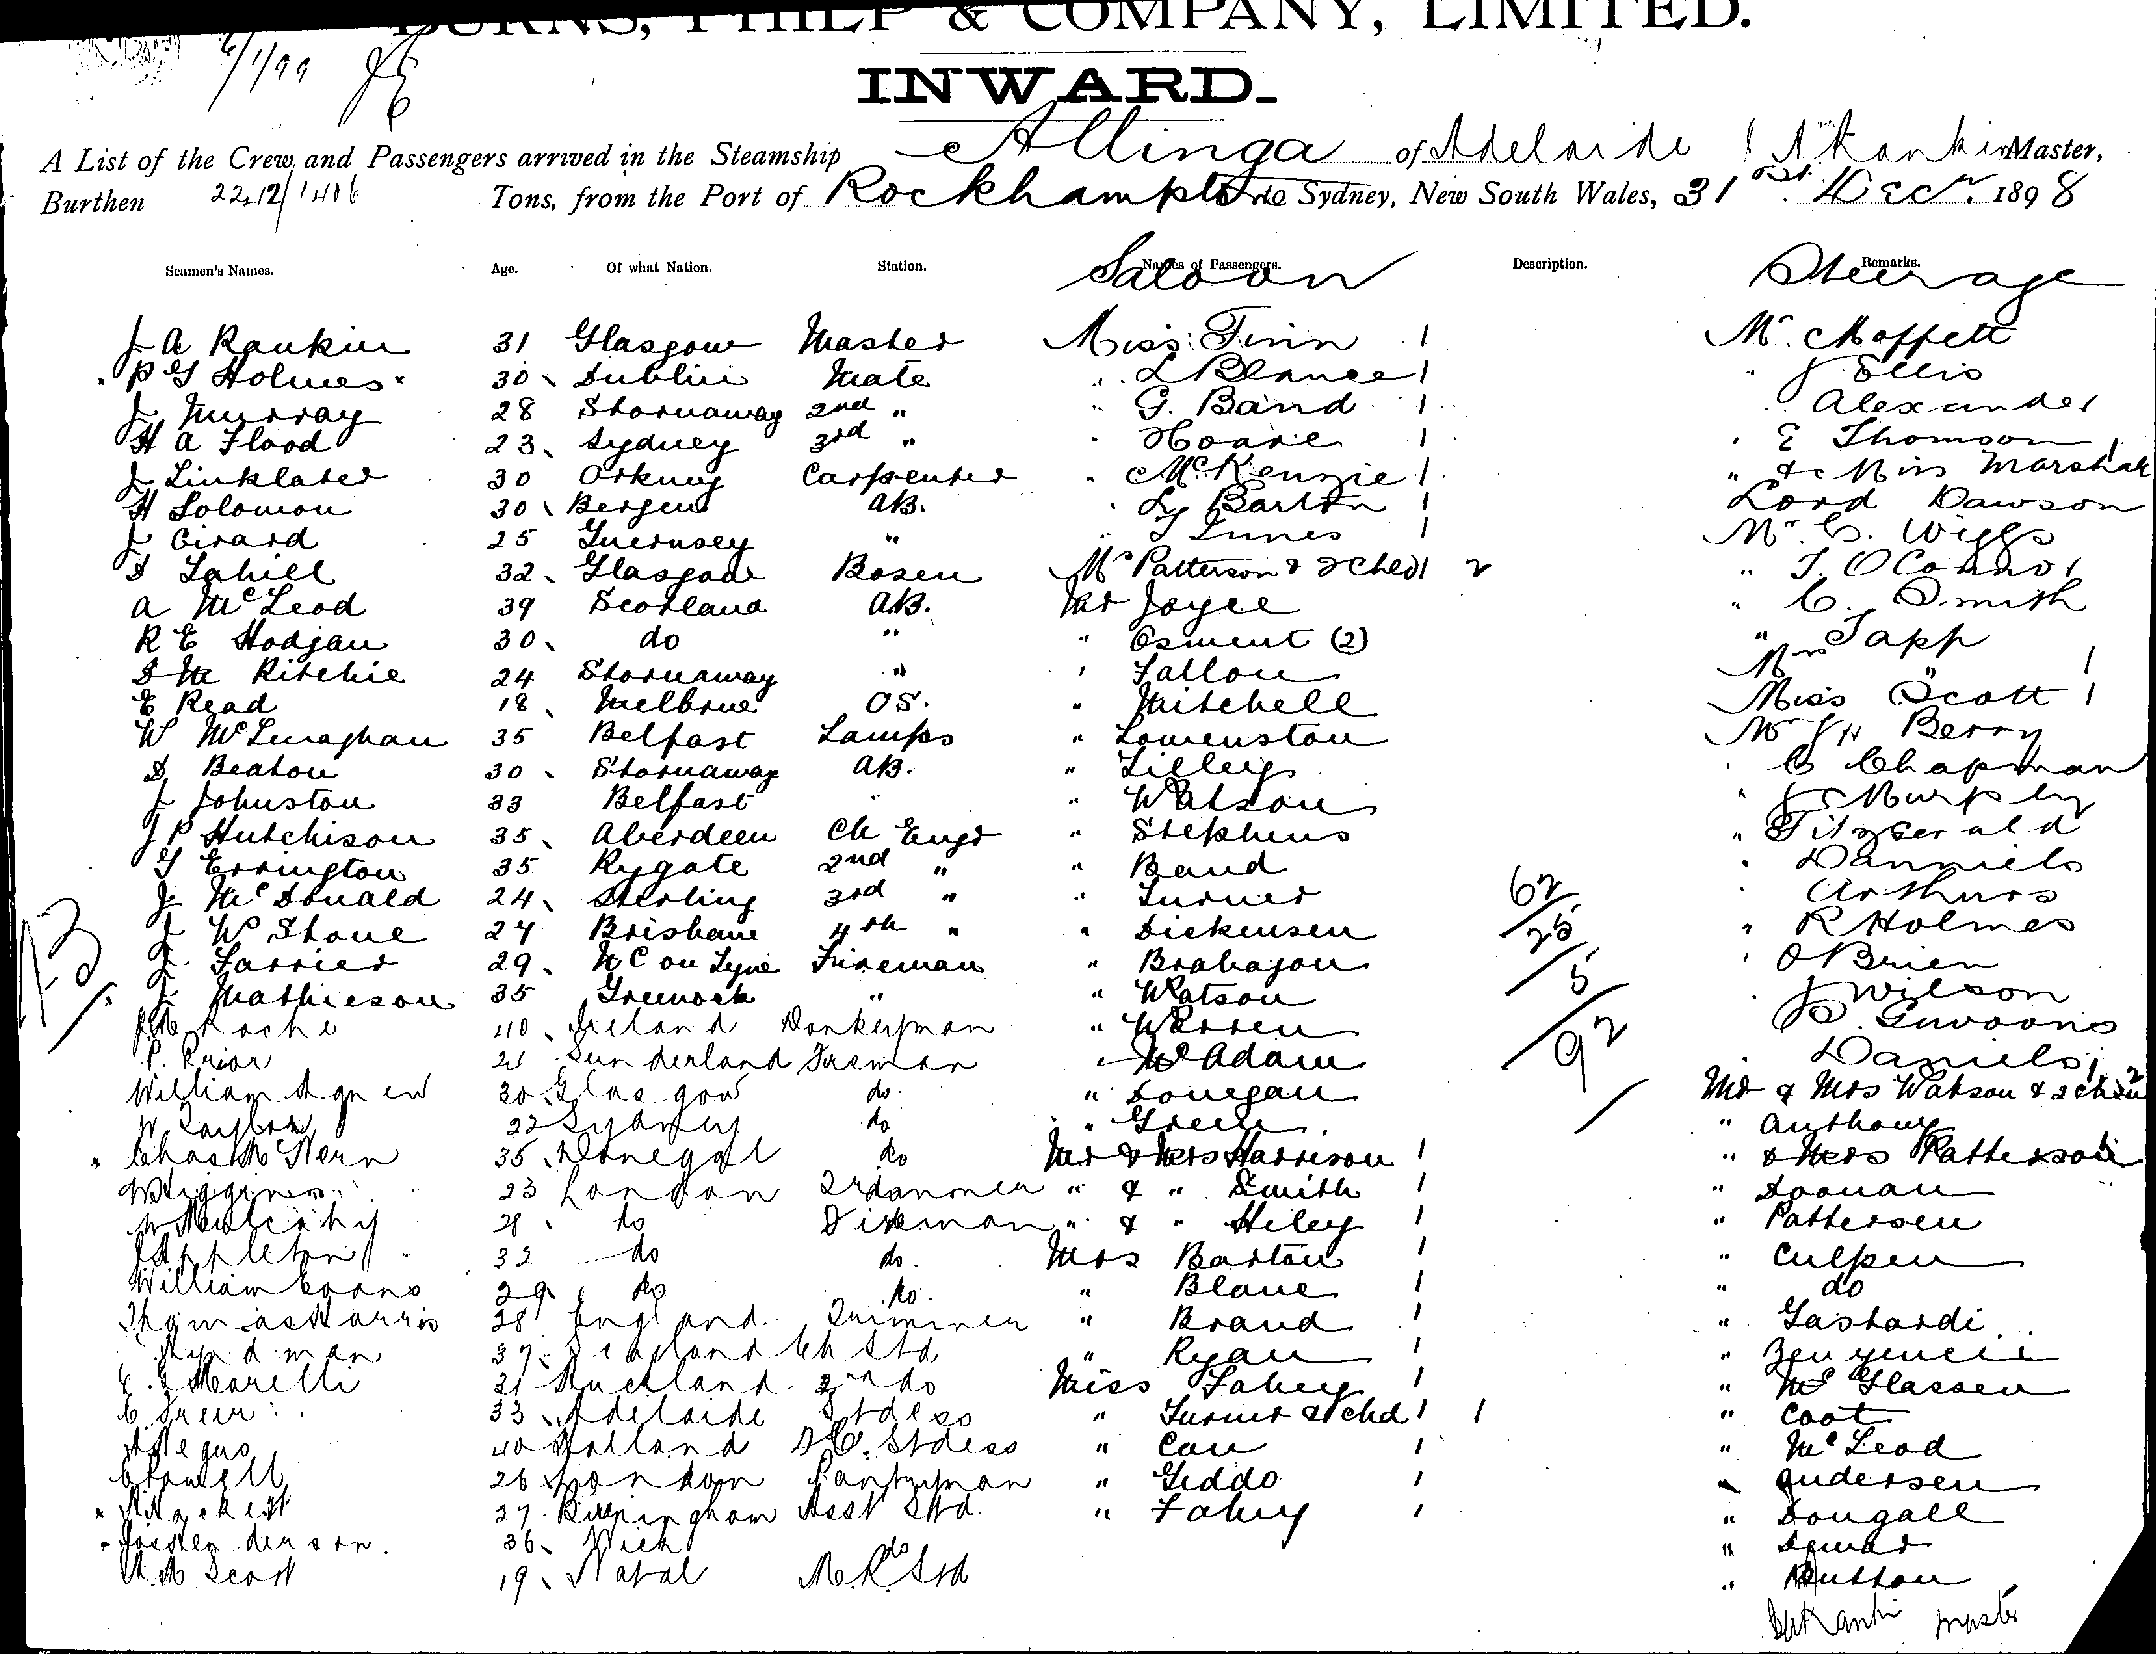 BURNS, PHILP & COMPANY, LIMITED.
6/1/99
INWARD.
A List of the Crew and Passengers arrived in the Steamship Allinga of Adelaide J A Rankin Master,
Burthen 2242/1406 Tons, from the Port of Rockhampton to Sydney, New South Wales, 31st Decr. 1898
Seamen's Names. Age. Of what Nation. Station. Names of Passengers. Description. Remarks.
Saloon Steerage
J A Rankin 31 Glasgow Master Miss Finn 1 Mr. Moffett
P G Holmes 30 Dublin Mate " L Blance 1 " J Ellis
J Murray 28 Stornaway 2nd " " G. Band 1 Alexander
H A Flood 23 Sydney 3rd " " Hoare 1 " E Thomson 1
J Linklater 30 Orkney Carpenter " McKenzie 1 " & Miss Marshall
H Solomon 30 Bergen AB. " Ly Barton 1 Lord Dawson
J Girard 25 Guernsey " " J Innes 1 Mr. C. Wiggs
D Lahill 32 Glasgow Bosen Mrs Patterson & 2 Chld 1 2 " T. OConnor
A McLeod 39 Scotland AB. Mr Joyce " C. Smith
R E Hodjan 30 do " " Osment (2) " Tapp
D M Ritchie 24 Stornaway " " Fallon Mrs " 1
E Read 18 Melbrne OS. " Mitchell Miss Scott 1
W McLenaghan 35 Belfast Lamps " Lowenston Mr J H Berry
D Beaton 30 Stornaway AB. " Lilley " C Chapman
J Johnston 33 Belfast " " Watson " J Murphy
J P Hutchison 35 Aberdeen Ch Engr " Stephens " Fitzgerald
G Errington 35 Rygate 2nd " " Band " Danniels
J McDonald 24 Sterling 3rd " " Turner " Arthurs
J W Stone 27 Brisbane 4th " " Dickensen " R Holmes
J Farrier 29 N C on Tyne Fireman " Brabazon " OBrien
J Mathieson 35 Greenock " " Watson " J Wilson
Roche 40 Ireland Donkeyman " Warren
P. Prior 21 Sunderland Fireman " McAdam " Daniels
William Agnew 30 Glasgow do " Donegan Mr & Mrs Watson & 2 chdn 2
W Taylor 22 Sydney do " Green " Anthony
Chas McStern 35 Donegal do Mr & Mrs Harrison 1 " & Mrs Patterson 1
W Higgins 23 London Trimmer " & " Smith 1 " Doonan
W Mulcahy 28 do Fireman " & " Hiley 1 " Pattersen
J Appleton 32 do do. Mrs Barton 1 " Culpen
William Evans 29 do do. " Blane 1 " do
Thomas Harris 28 England Trimmer " Brand 1 " Gastardi
Hyndman 37 Scotland Ch Std " Ryan 1
Morelli 21 Auckland 2nd do Miss Fahey 1 " McGlassen
C Greer 33 Adelaide Stdess " Turner & chd 1 1 " Coot
40 Holland Stdess " Carr 1 " McLeod
26 London Pantryman " Geddo 1 " Andersen
27 Birmingham Asst Std. " Fahey 1 " Dougall
36 Wick do
A M Scott 19 Natal M.R. Std " Button
43
62
25
5
92
J A Rankin Master